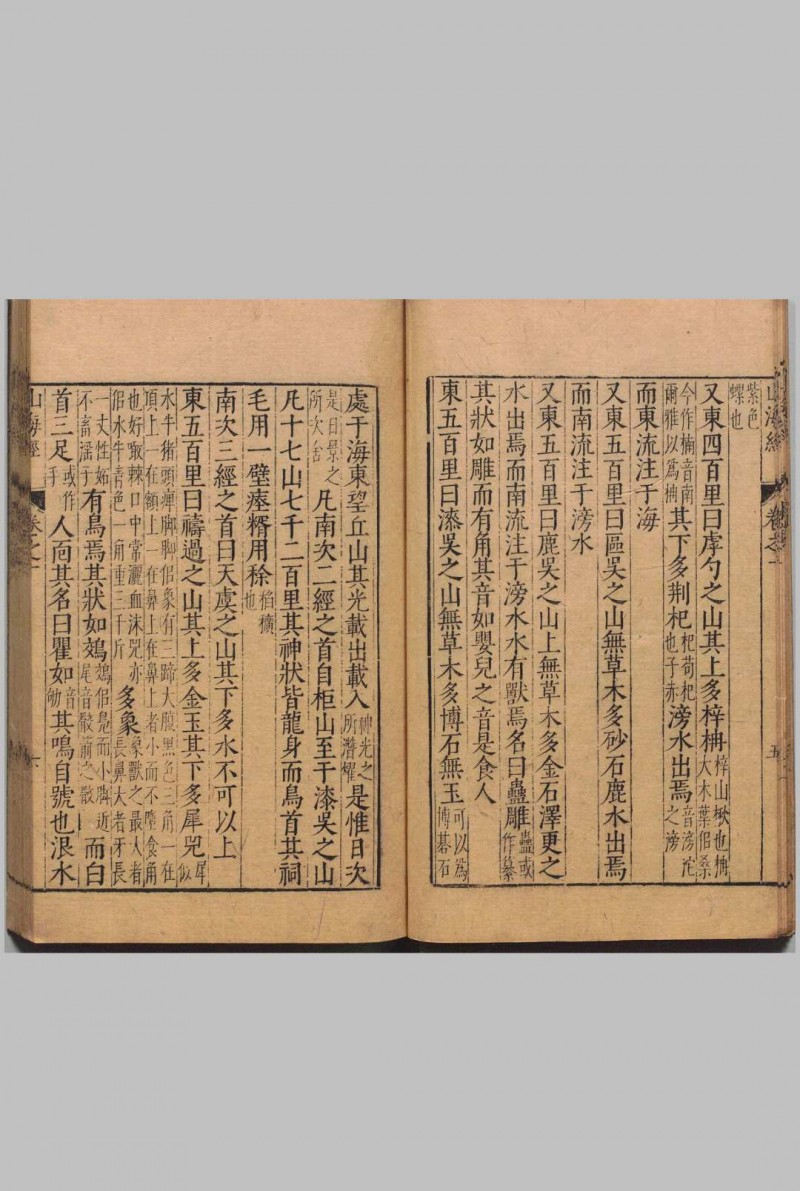 山海經 卷之一 五
紫色螺也
又東四百里曰虖勺之山其上多梓枏梓山楸也枏大木葉佀桑
今作楠音南爾雅以爲枏其下多荆杞杞苟杞也子赤滂水出焉音滂沱之滂
而東流注于海
又東五百里曰區吳之山無草木多砂石鹿水出焉
而南流注于滂水
又東五百里曰鹿吳之山上無草木多金石澤更之
水出焉而南流注于滂水水有獸焉名曰蠱雕蠱或作纂
其狀如雕而有角其音如嬰兒之音是食人
東五百里曰漆吳之山無草木多博石無玉可以爲博碁石
處于海東望丘山其光載出載入神光之所潛燿是惟日次
是日景之所次舍凡南次二經之首自柜山至于漆吳之山
凡十七山七千二百里其神狀皆龍身而鳥首其祠
毛用一璧瘞糈用稌稻穬也
南次三經之首曰天虞之山其下多水不可以上
東五百里曰禱過之山其上多金玉其下多犀兕犀似
水牛猪頭痺脚脚佀象有三蹄大腹黑色三角一在頂上一在額上一在鼻上在鼻上者小而不墮食角
也好噉棘口中常灑血沫兕亦佀水牛青色一角重三千斤多象象獸之最大者長鼻大者牙長
一丈性妬不畜淫子有鳥焉其狀如鵁鵁佀鳧而小脚近尾音骹箭之骹而白
首三足或作手人面其名曰瞿如音劬其鳴自號也泿水
山海經 卷之一 六